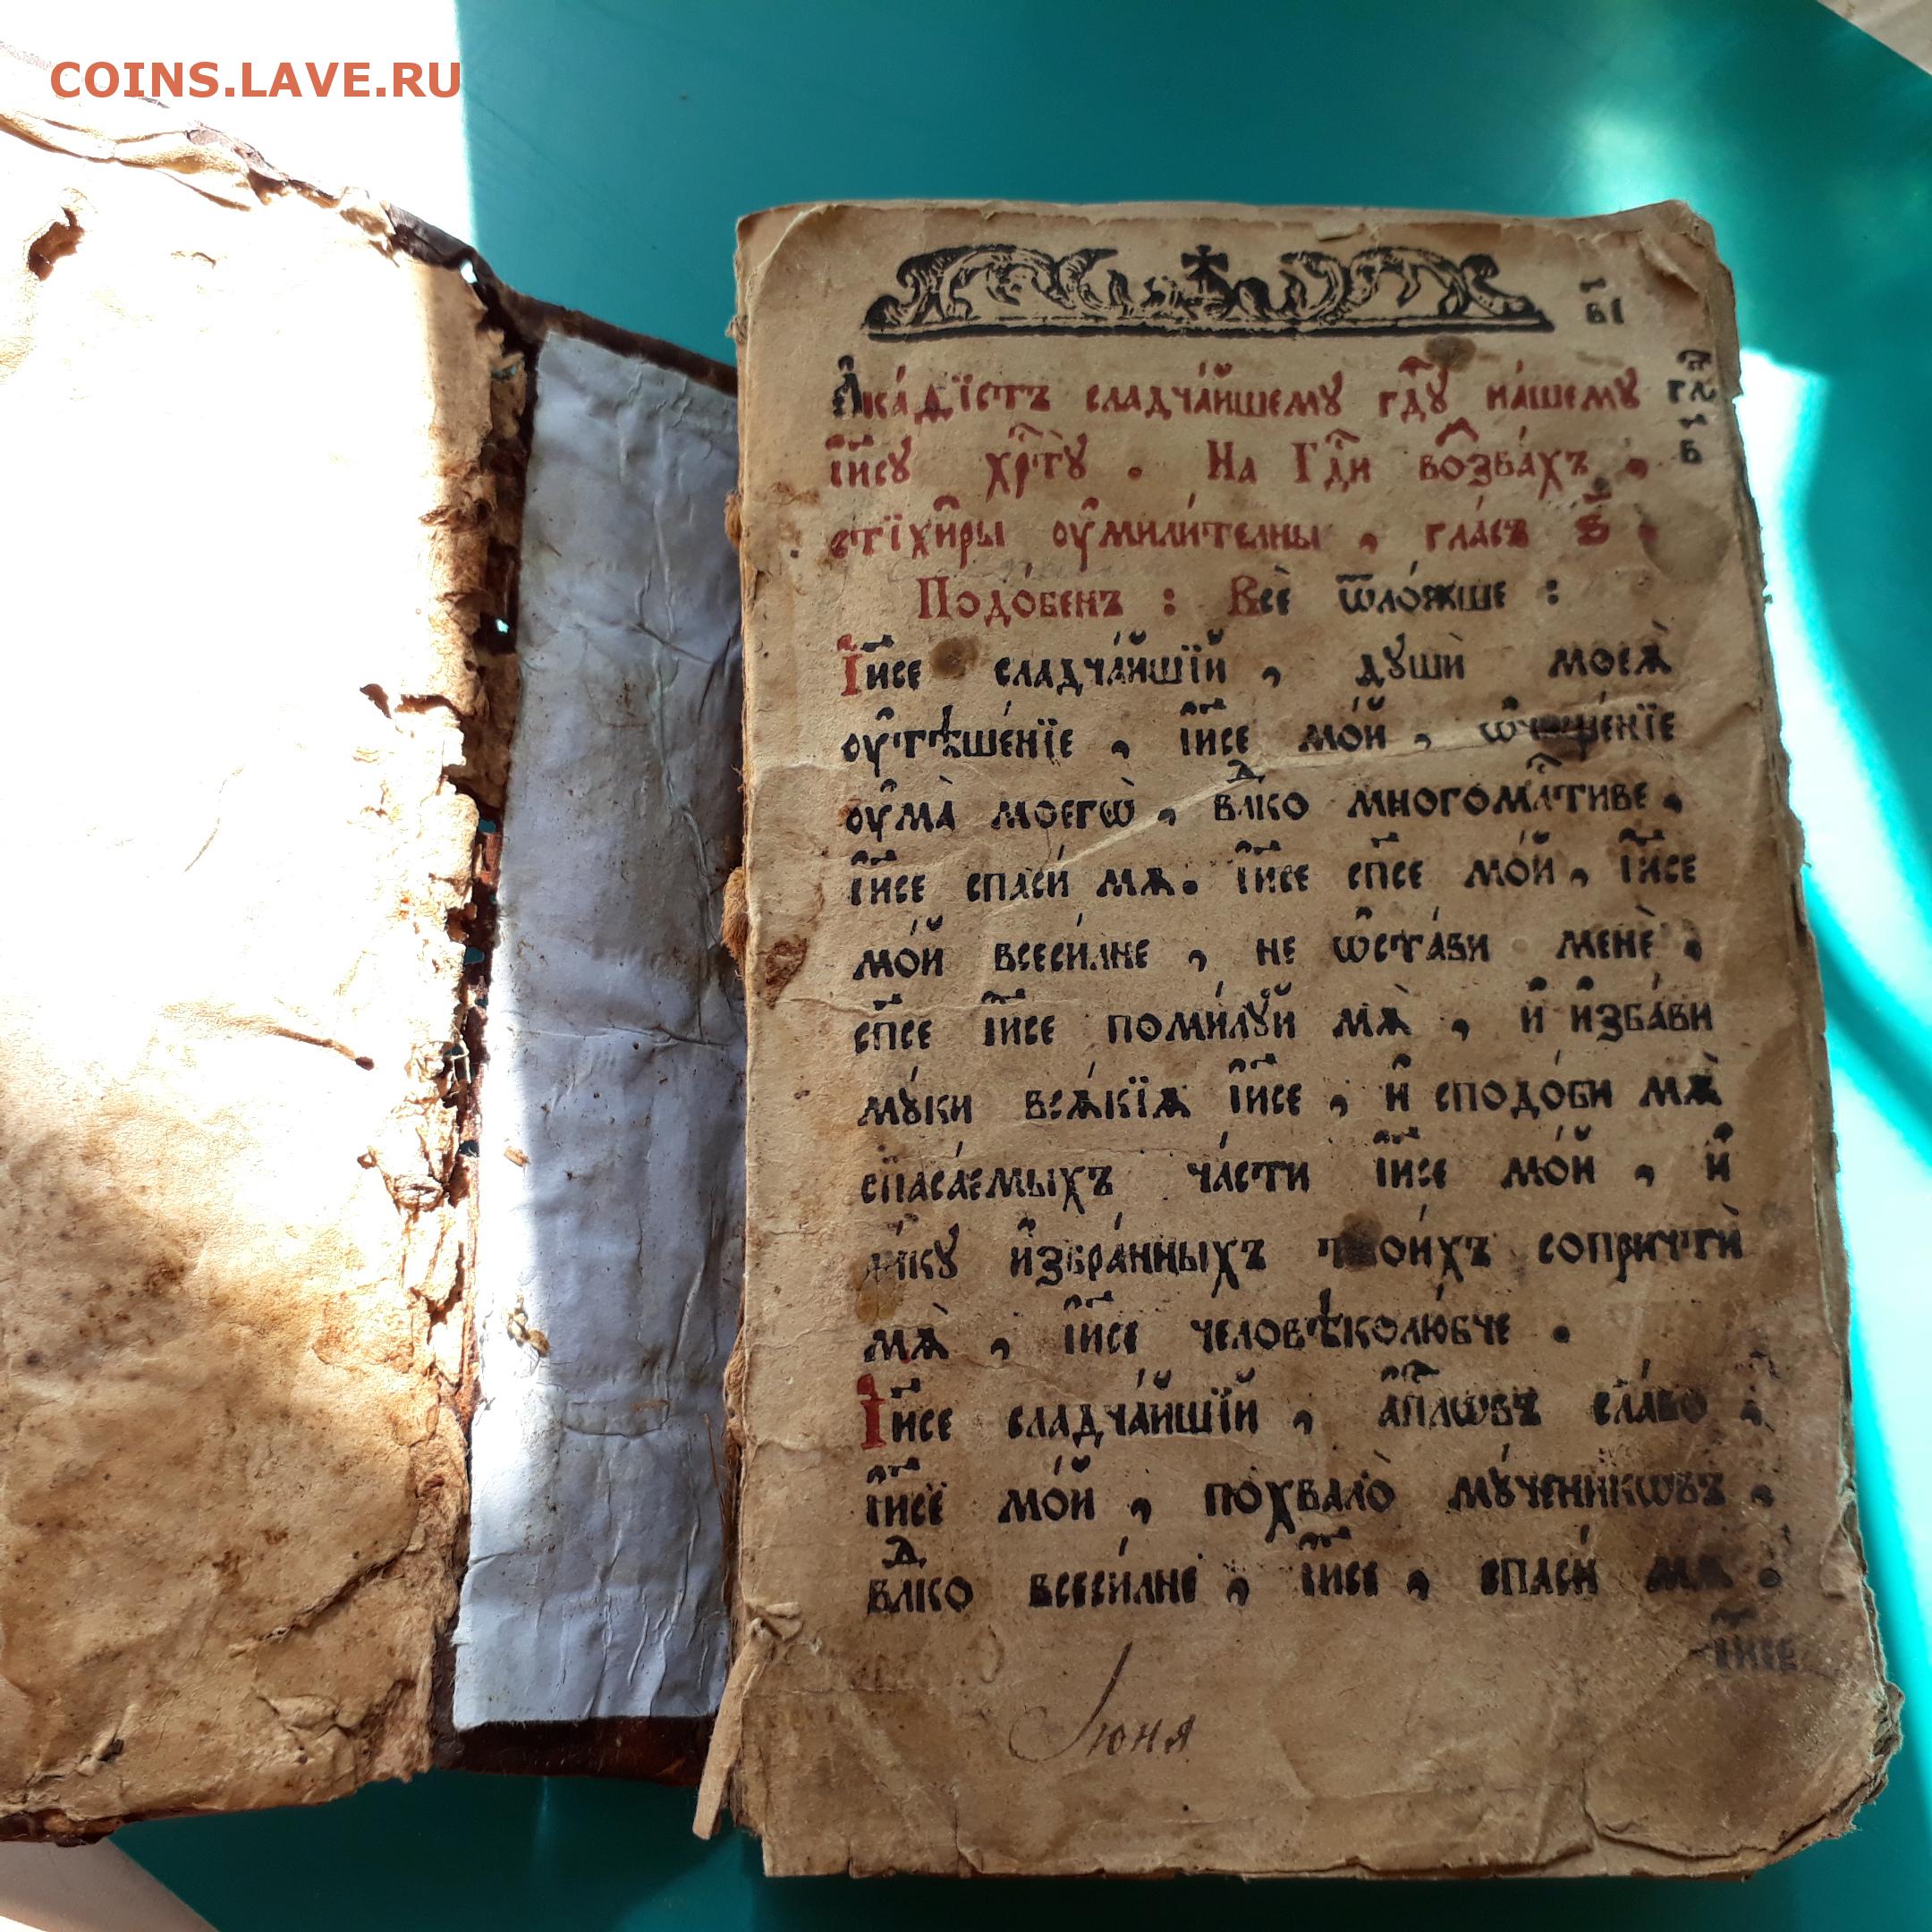 COINS.LAVE.RU
в҃і
А҆ка́ѳїстъ сладча́йшему гдⷭ҇ꙋ на́шему
гла҃
і҆и҃сꙋ хрⷭ҇тꙋ̀ . На Гдⷭ҇и возва́хъ ,
в҃
стїхи̑ры ᲂу҆мили́телны , гла́съ
Подо́бенъ : Всѐ ѿло́жше :
І҆и҃се сладча́йшїй , дꙋшѝ моеѧ̀
ᲂу҆тѣше́нїе , і҆и҃се мо́й , ѡ҆чище́нїе
ᲂу҆ма̀ моегѡ̀ , влⷣко многомлⷭ҇тиве ,
і҆и҃се спаси́ мѧ . і҆и҃се сп҃се мо́й , і҆и҃се
мо́й всеси́лне , не ѡ҆ста́ви менѐ ,
сп҃се і҆и҃се поми́лꙋй мѧ̀ , и҆ и҆зба́ви
мꙋ́ки всѧ́кїѧ і҆и҃се , и҆ сподо́би мѧ̀
спаса́емыхъ ча́сти і҆и҃се мо́й , и҆
ли́кꙋ и҆збра́нныхъ твои́хъ сопричтѝ
мѧ̀ , і҆и҃се человѣколю́бче .
І҆и҃се сладча́йшїй , а҆пⷭ҇лѡвъ сла́во ,
і҆и҃се мо́й , похвало̀ мꙋ́ченикѡвъ ,
влⷣко всеси́лне , і҆и҃се , спаси́ мѧ .
і҆и҃се
Июня